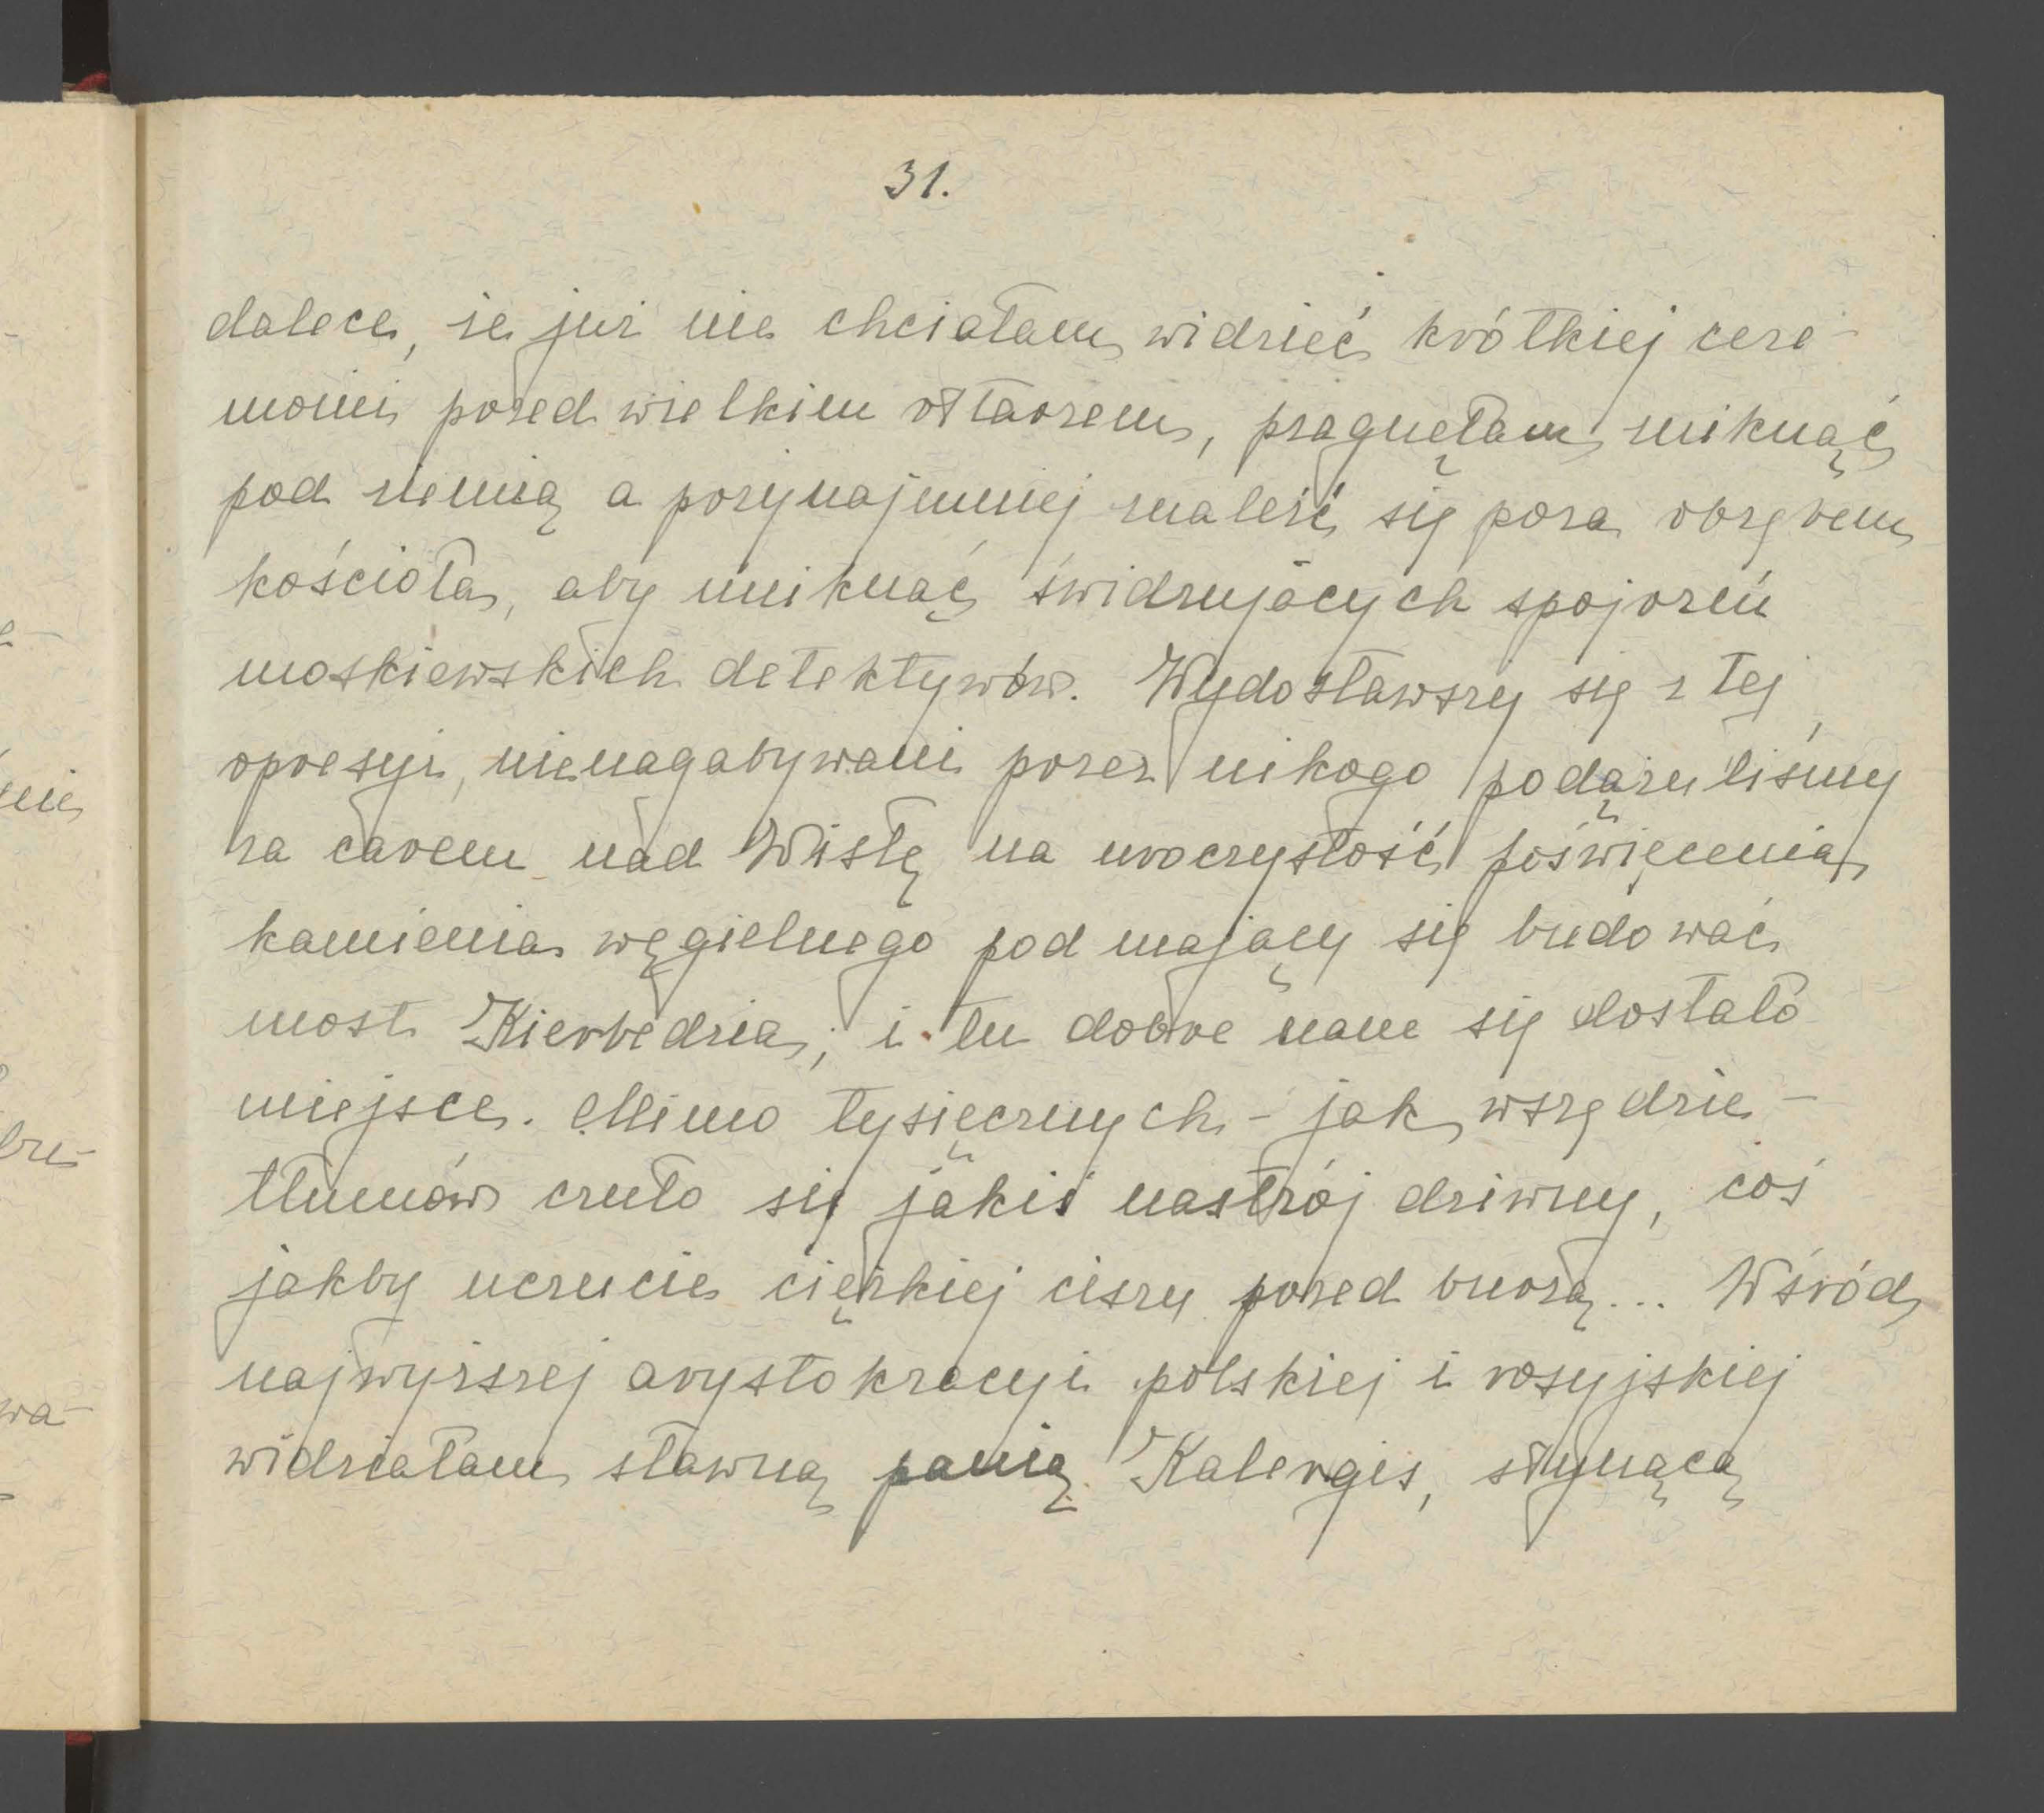 31.
dalece, że już nie chciałam widzieć krótkiej cere-
monii przed wielkim ołtarzem, pragnęłam zniknąć
pod ziemią a przynajmniej znaleźć się poza obrębem
kościoła, aby uniknąć świdrujących spojrzeń
moskiewskich detektywów. Wydostawszy się z tej
opresyi, nienagabywani przez nikogo podążyliśmy
za carem nad Wisłę na uroczystość poświęcenia
kamienia węgielnego pod mający się budować
most Kierbedzia; i tu dobre nam się dostało
miejsce. Mimo tysięcznych - jak wszędzie -
tłumów czuło się jakiś nastrój dziwny, coś
jakby uczucie ciężkiej ciszy przed burzą... Wśród
najwyższej arystokracyi polskiej i rosyjskiej
widziałam sławną panią Kalergis, słynącą